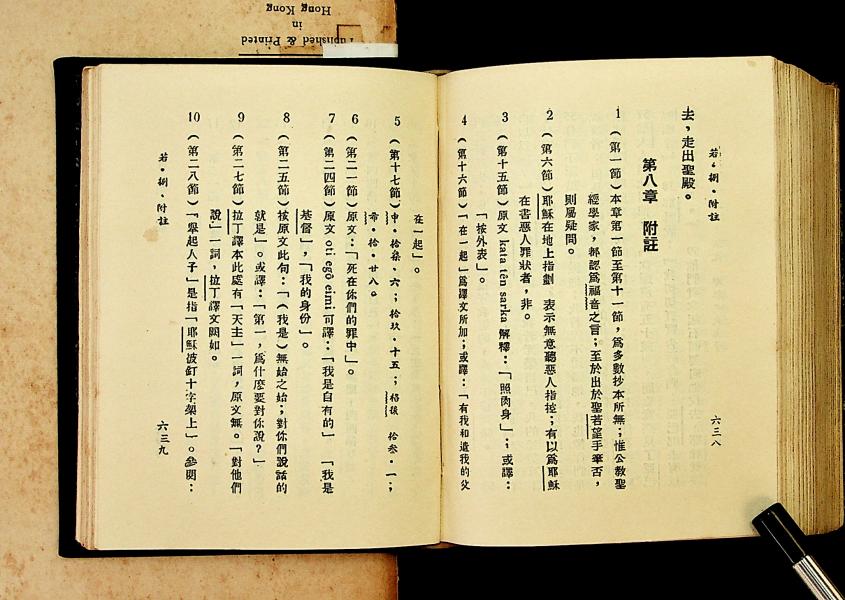 若・捌・附註
去，走出聖殿。
第八章　附註
1（第一節）本章第一節至第十一節，爲多數抄本所無；惟公教聖
經學家，都認爲福音之言；至於出於聖若望手筆否，
則屬疑問。
2（第六節）耶穌在地上指劃　表示無意聽惡人指控；有以爲耶穌
在書惡人罪狀者，非。
3（第十五節）原文 kata tēn sarka 解釋：「照肉身」；或譯：
「按外表」。
4（第十六節）「在一起」爲譯文所加；或譯：「有我和遣我的父
六三八
在一起」。
5（第十七節）申・拾柒・六；拾玖・十五；格後　拾叁・一；
希・拾・廿八。
6（第二一節）原文：「死在你們的罪中」。
7（第二四節）原文 oti egō eimi 可譯：「我是自有的」　「我是
基督」，「我的身份」。
8（第二五節）按原文此句：「（我是）無始之始；對你們說話的
就是」。或譯：「第一，爲什麽要對你說？」
9（第二七節）拉丁譯本此處有「天主」一詞，原文無。「對他們
說」一詞，拉丁譯文闕如。
10（第二八節）「舉起人子」是指「耶穌被釘十字架上」。參閱：
若・捌・附註
六三九
Published & Printed
in
Hong Kong